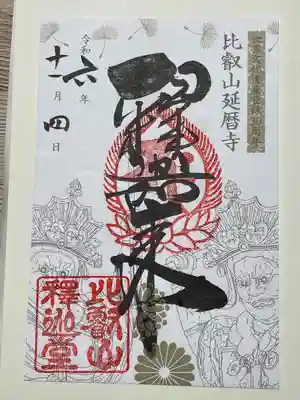 比叡山延暦寺
釋迦如来
令和六年
十一月四日
比叡山
釋迦堂